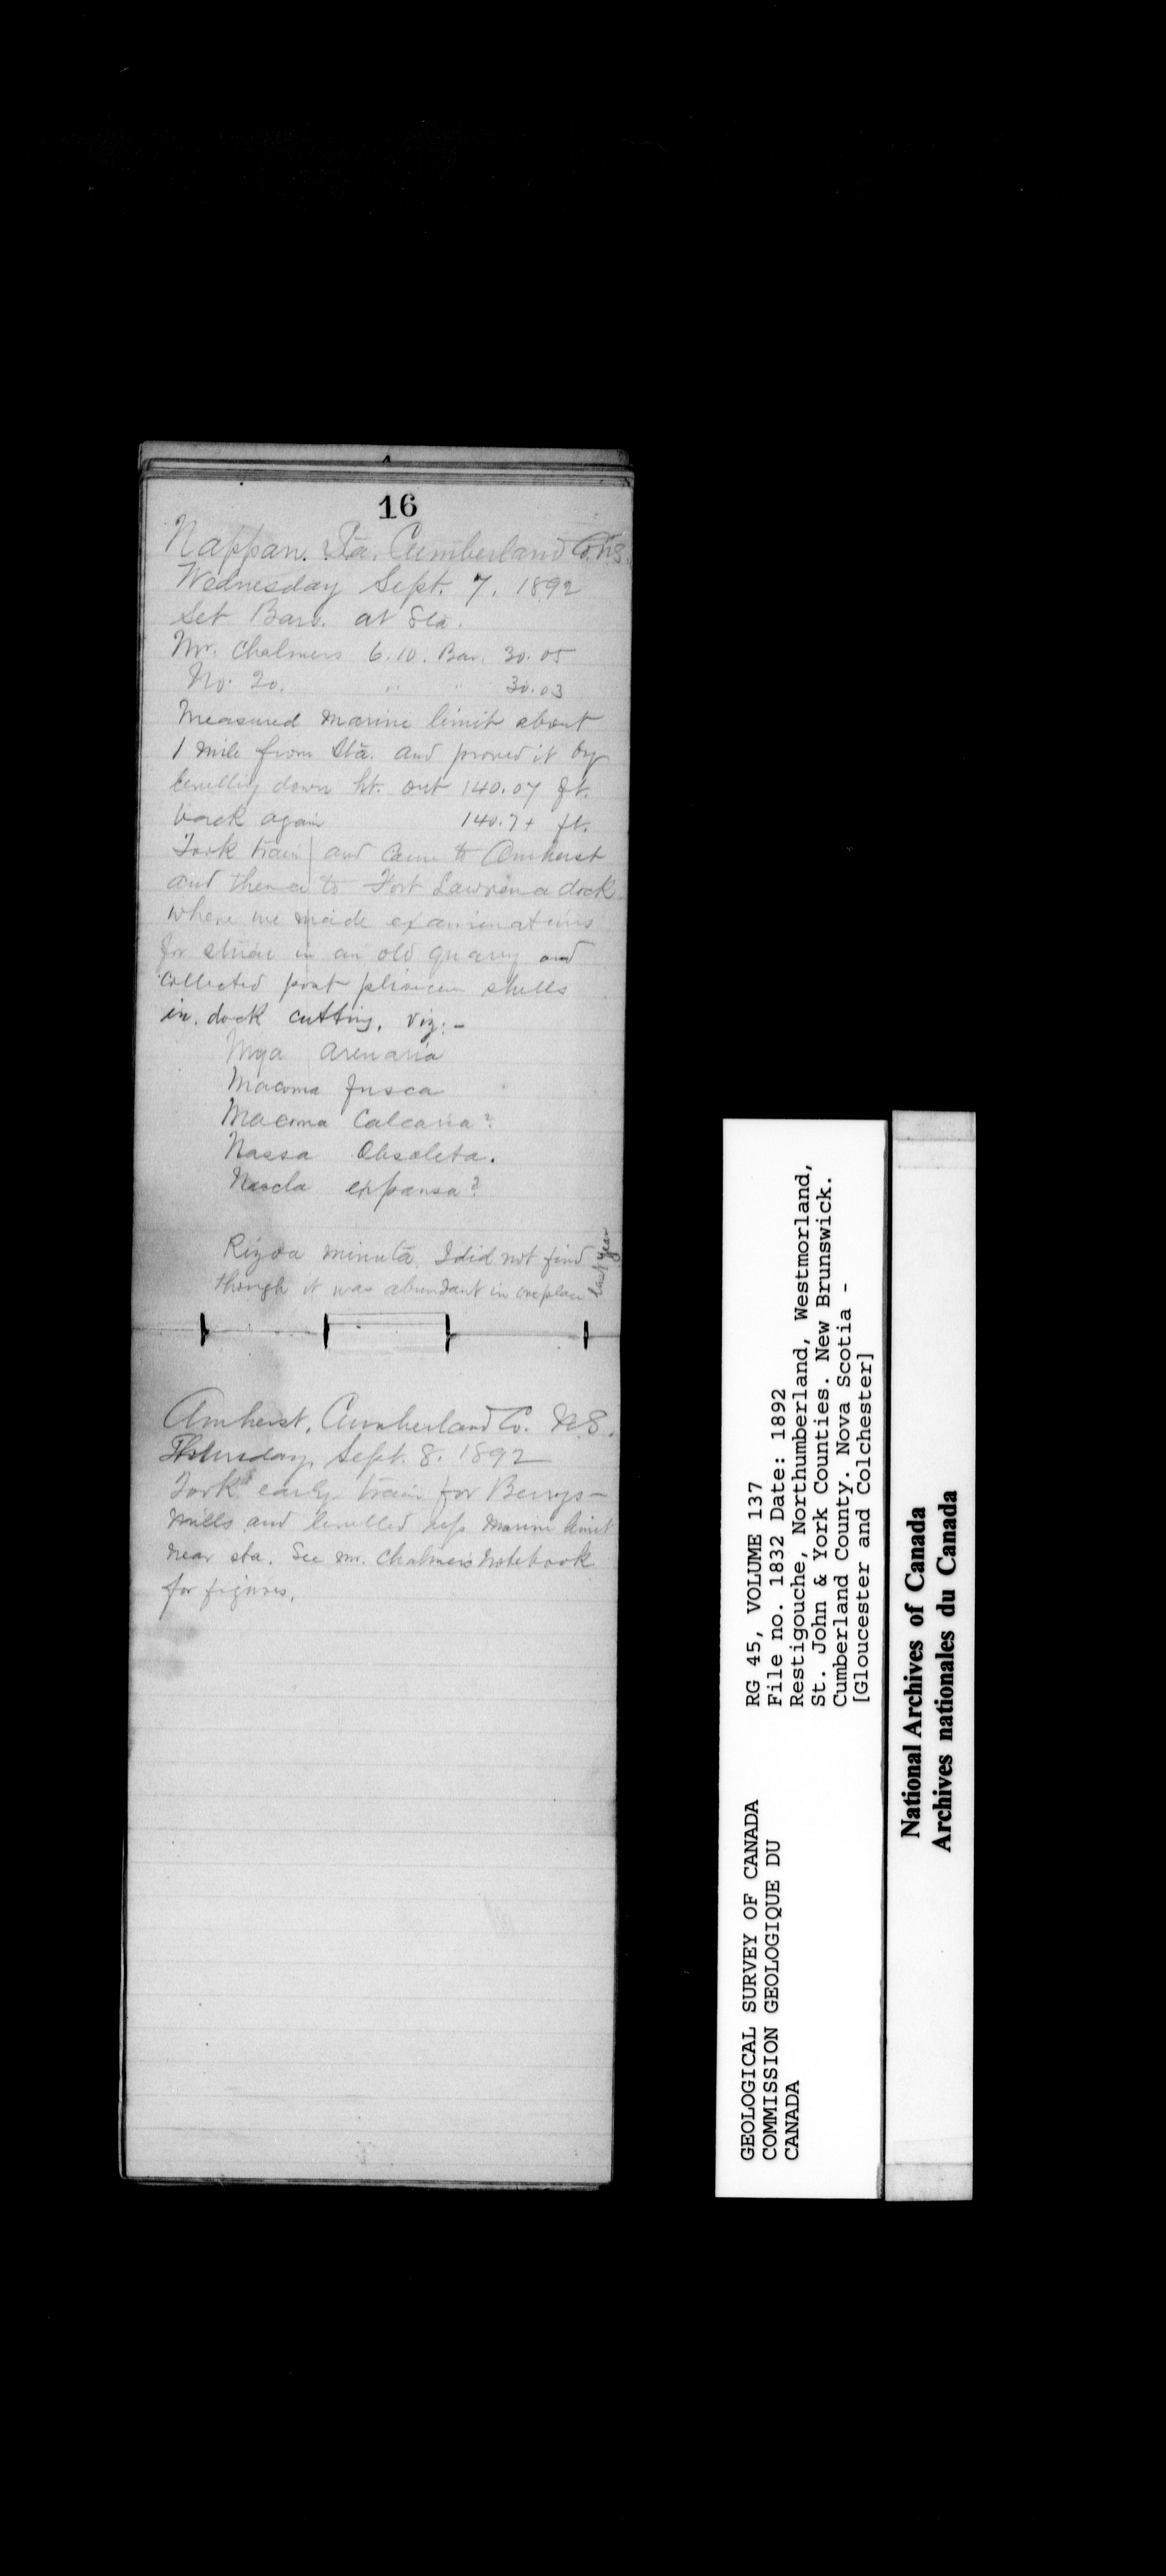 16
Nappan. Sta. Cumberland Co. N.S.
Wednesday Sept. 7. 1892
Set Baro. at Sta.
Mr. Chalmers 6.10. Bar. 30.05
No. 20. " " 30.03
Measured marine limit about
1 mile from Sta. and proved it by
levelling down ht. out 140.07 ft.
back again 140.7+ ft.
Took train and came to Amherst
and thence to Fort Lawrence dock
where we made examinations
for striae in an old quarry and
collected post pliocene shells
in dock cutting. viz:-
Mya arenaria
Macoma fusca
Macoma Calcaria?
Nassa Obsoleta.
expansa?
Rizoa minuta I did not find
though it was abundant in one place
last year
Amherst, Cumberland Co. N.S.
Thursday, Sept. 8. 1892
Took early train for Berrys-
Mills and levelled up marine limit
near sta. See Mr. Chalmers notebook
for figures.
RG 45, VOLUME 137
File no. 1832 Date: 1892
Restigouche, Northumberland, Westmorland,
St. John & York Counties. New Brunswick.
Cumberland County. Nova Scotia -
[Gloucester and Colchester]
GEOLOGICAL SURVEY OF CANADA
COMMISSION GEOLOGIQUE DU
CANADA
National Archives of Canada
Archives nationales du Canada